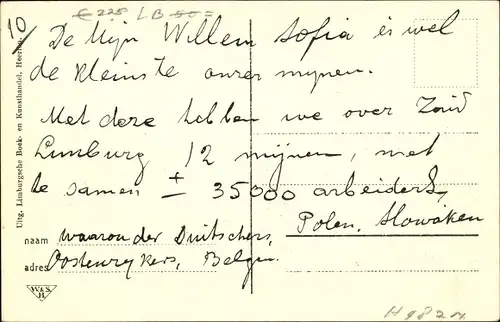 10
€ 225 LB 50 =
De Mijn Willem Sofia is wel
de kleinste onzer mijnen.
Met deze hebben we over Zuid
Limburg 12 mijnen, met
te samen ± 35000 arbeiders,
naam waaronder Duitschers, Polen, Slowaken
adres Oostenrijkers, Belgen.
Uitg. Limburgsche Boek- en Kunsthandel, Heerlen.
W&S
H982